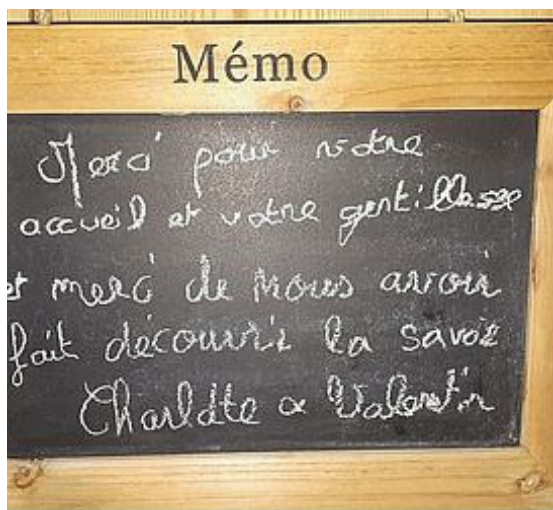 Mémo
Merci pour votre
accueil et votre gentillesse
et merci de nous avoir
fait découvrir la savoie
Charlotte & Valentin